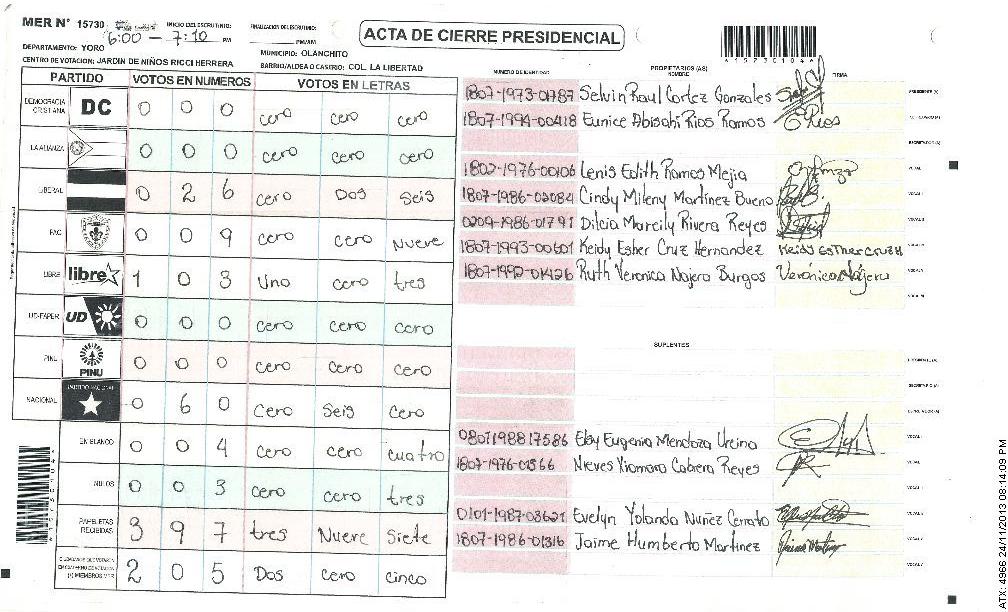 MER N° 15730
INICIO DEL ESCRUTINIO:
6:00 – 7:10 PM
FINALIZACION DEL ESCRUTINIO:
PM/AM
ACTA DE CIERRE PRESIDENCIAL
DEPARTAMENTO: YORO
MUNICIPIO: OLANCHITO
CENTRO DE VOTACION: JARDIN DE NIÑOS RICCI HERRERA
BARRIO/ALDEA O CASERIO: COL. LA LIBERTAD
PARTIDO VOTOS EN NUMEROS VOTOS EN LETRAS
DEMOCRACIA CRISTIANA DC 0 0 0 cero cero cero
LA ALIANZA 0 0 0 cero cero cero
LIBERAL 0 2 6 cero Dos Seis
PAC 0 0 9 cero cero Nueve
LIBRE libre 1 0 3 Uno cero tres
UD-FAPER UD 0 0 0 cero cero cero
PINU PINU 0 0 0 cero cero cero
NACIONAL PARTIDO NACIONAL 0 6 0 cero Seis cero
EN BLANCO 0 0 4 cero cero cuatro
NULOS 0 0 3 cero cero tres
PAPELETAS RECIBIDAS 3 9 7 tres Nueve Siete
(+) MIEMBROS MER 2 0 5 Dos cero cinco
NUMERO DE IDENTIDAD PROPIETARIOS (AS) NOMBRE FIRMA
1807-1973-01787 Selvin Raul Cortez Gonzales
1807-1994-00418 Eunice Abisahi Rios Ramos
1802-1976-00106 Lenis Edith Ramos Mejia
1807-1986-02084 Cindy Mileny Martinez Bueno
0209-1986-01791 Dilcia Marcily Rivera Reyes
1807-1993-00601 Keidy Esher Cruz Hernandez Keidy Esther Cruz H
1807-1992-01426 Ruth Veronica Najera Burgos Verónica Nájera
SUPLENTES
0801198817586 Elsy Eugenia Mendoza Urcina
1807-1976-01566 Nieves Xiomara Cabrera Reyes
0101-1987-03621 Evelyn Yolando Nuñez Cerrato
1807-1986-01316 Jaime Humberto Martinez
ATX: 4966 24/11/2013 08:14:09 PM